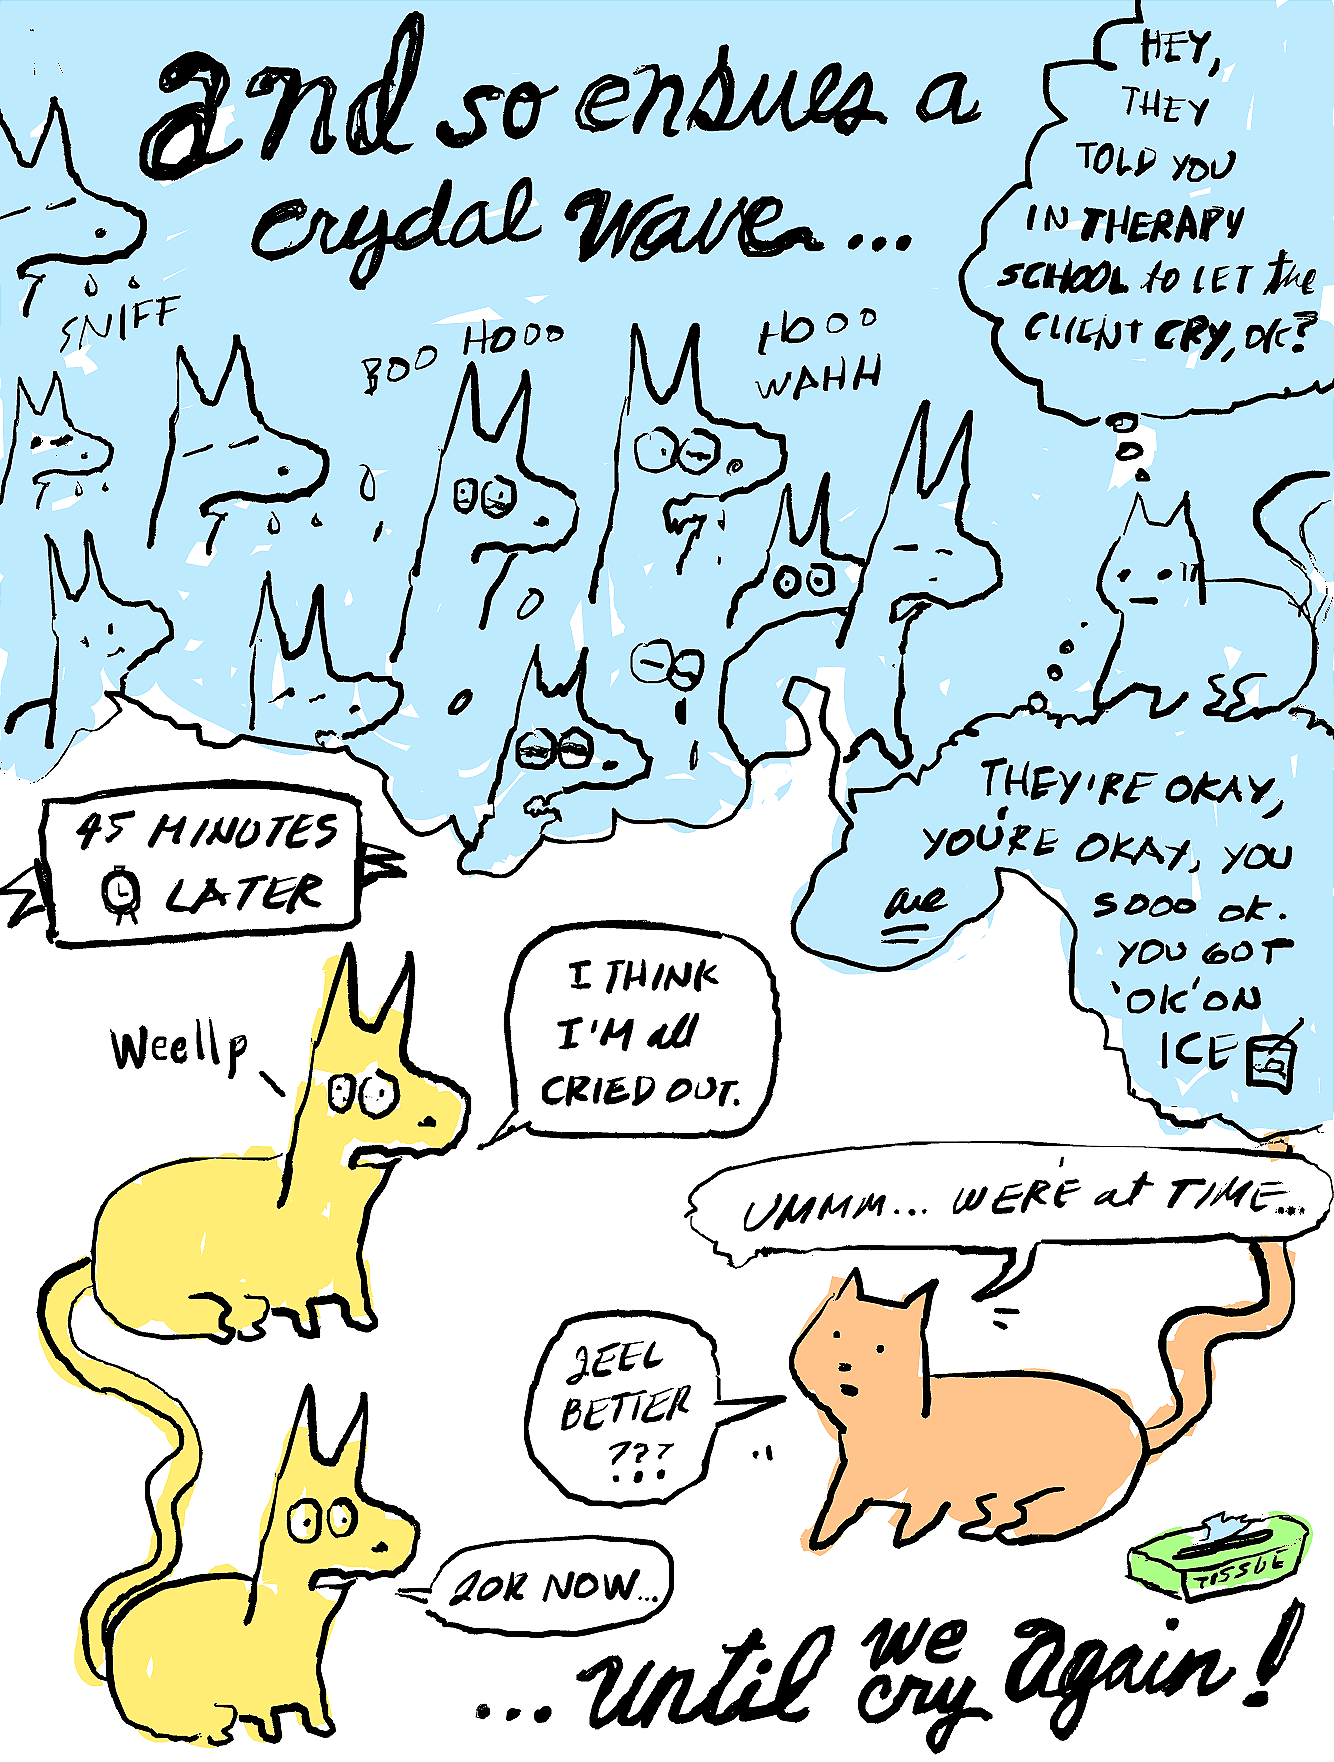 and so ensues a
crydal wave...
HEY,
THEY
TOLD YOU
IN THERAPY
SCHOOL to LET the
CLIENT CRY, OK?
SNIFF
BOO HOOO
HOOO
WAHH
THEY'RE OKAY,
YOU'RE OKAY, YOU
are SOOO OK.
YOU GOT
'OK' ON
ICE
45 MINUTES
LATER
Weellp
I THINK
I'M all
CRIED OUT.
UMMM... WE'RE at TIME...
FEEL
BETTER
???
FOR NOW...
TISSUE
...until we
cry again!